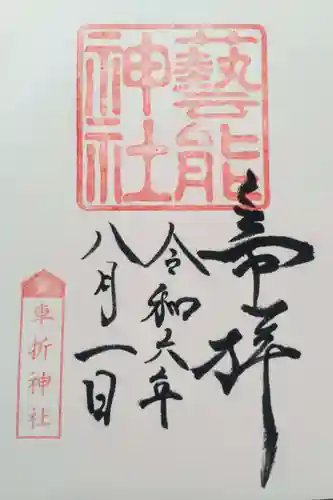 藝能
神社
奉拝
令和六年
八月一日
車折神社